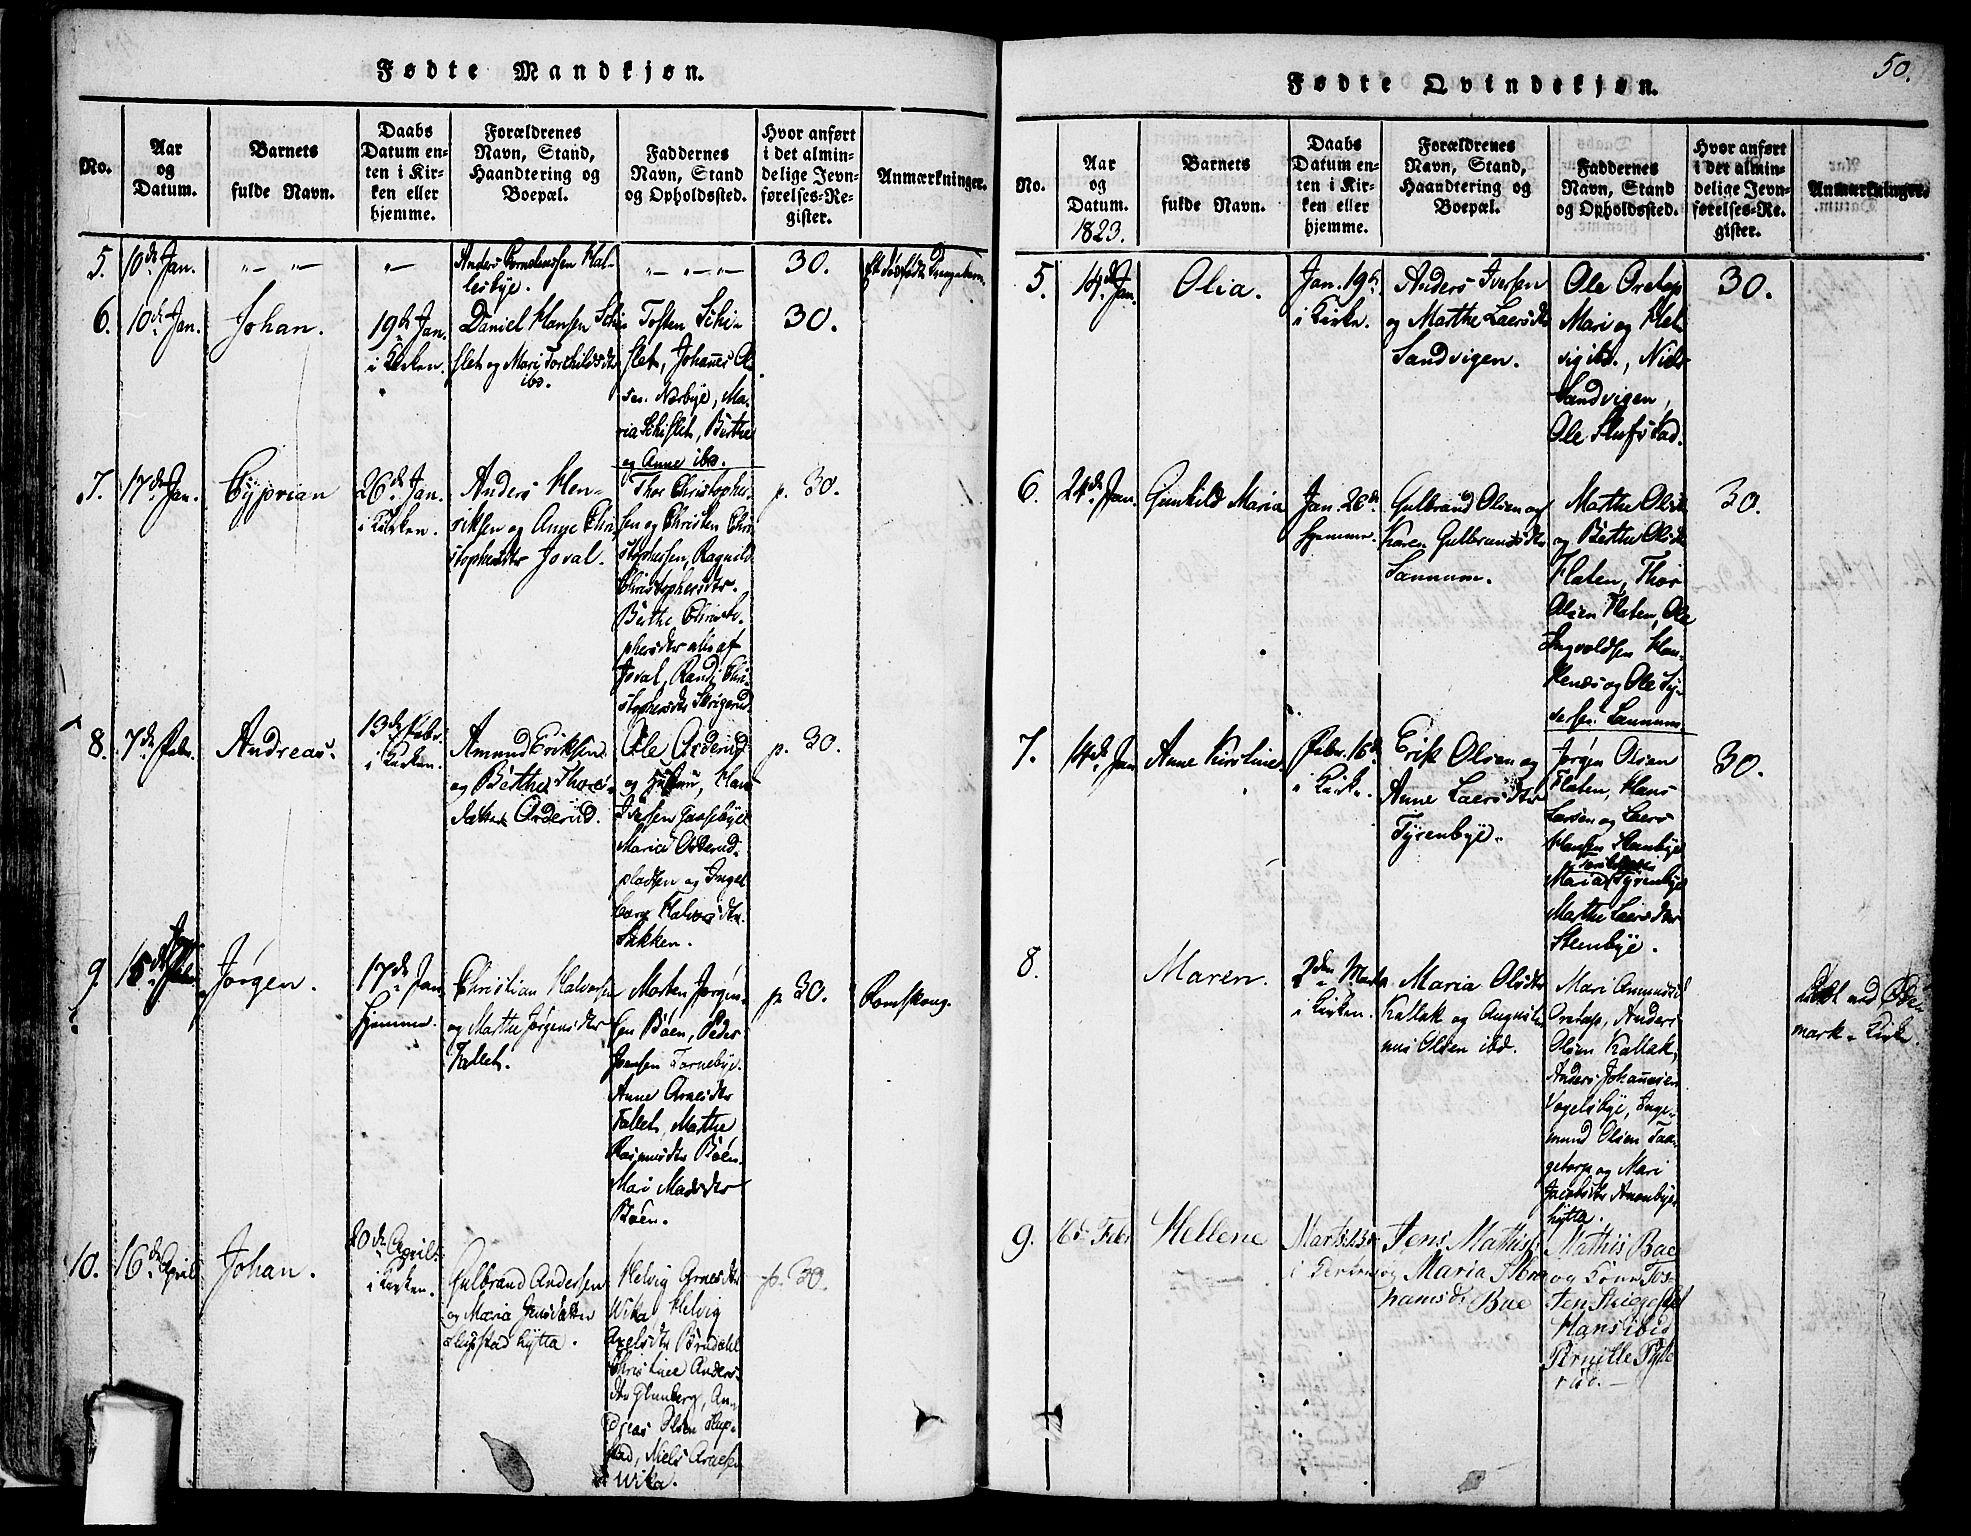 Fødte Mandkjøn.
No.
Aar
og
Datum.
Barnets
fulde Navn.
Daabs
Datum en-
ten i Kir-
ken eller
hjemme.
Forældrenes
Navn, Stand,
Haandtering og
Boepæl.
Faddernes
Navn, Stand
og Opholdssted.
Hvor anført
i det almin-
delige Jevn-
førelses-Re-
gister.
Anmærkninger.
5. 10de Jan. " — " — " —
Anders
lesbye.
" — " — " —
30.
Et dødfødt
6. 10de Jan. Johan.
19de Jan.
i Kirken.
Daniel Hansen Schi-
slet og Mari Torchildsdtr
ibd.
Tosten Schi-
slet, Johannes Ol-
sen Nærbye, Ma-
ria Schislet, Berthe
og Anne ibd.
30.
7. 17de Jan. Cyprian
26de Jan.
i Kirken.
Anders Hen-
riksen og Anne Chri-
stophersdtr Joval.
Thor Christopher-
sen og Christen Chri-
stophersen, Ragnild
Christophersdtr.
Berthe Christo-
phersdtr alle af
Joval, Randi Chri-
stophersdtr
p. 30.
8. 7de Febr. Andreas.
13de Febr.
i Kirken.
Amund Eriksen
og Berthe Thors-
datter Orderud.
Ole Orderud
og Hans
Iversen Gaasebye
Maria Orderud-
pladsen og Ingel-
borg Halvorsdtr
Sukken.
p. 30.
9. 15de Jan. Jørgen.
17de Jan.
hjemme.
Christian Halvorsen
og Marthe Jørgensdtr
Fallet.
Morten Jørgen-
sen Böen, Peder
Jensen Tornebye.
Anne Arnesdtr
Fallet, Marthe
Rasmusdtr Böen.
Mari Madsdtr
Böen.
p. 30.
Romskoug.
10. 16de April Johan.
20de April.
i Kirken.
Gulbrand Andersen
og Maria Jensdatter
Slupstad hytta.
Helvig Arnesdtr
Wika, Helvig
Axelsdtr Börndahl
Christine Anders-
dtr Glenberg, An-
dreas Olsen Slup-
stad, Niels Arnesen
Wika.
p. 30.
50.
Fødte Qvindekjøn.
No.
Aar
og
Datum.
1823.
Barnets
fulde Navn.
Daabs
Datum en-
ten i Kir-
ken eller
hjemme.
Forældrenes
Navn, Stand,
Haandtering og
Boepæl.
Faddernes
Navn, Stand
og Opholdssted.
Hvor anført
i det almin-
delige Jevn-
førelses-Re-
gister.
Anmærkninger.
5. 14de Jan. Olia.
Jan. 19de
i Kirke.
Anders Iversen
og Marthe Laersdtr
Sandvigen.
Ole Oretap
Mari og Hel-
vig ibd., Niels
Sandvigen,
Ole Slufstad.
30.
6. 24de Jan. Gunhild Maria
Jan. 26de
hjemme.
Gulbrand Olsen og
Karen Gulbransdtr
Sannum.
Marthe Olsdtr
og Berthe Olsdtr
Flaten, Thor
Olsen Flaten, Ole
Ingvoldsen Han-
kenæs og Ole Sy-
versen Sannum.
30.
7. 14de Jan Anne Kirstine
Febr. 16de
i Kirke.
Erik Olsen og
Anne Laersdtr
Tyrenbye.
Jørgen Olsen
Flaten, Hans
Larsen og Laers
Hansen Stenbye
Maria Tyrenbye
Marthe Laersdtr
Stenbye.
30.
8. Maren.
2den Marts
i Kirken.
Maria Olsdtr
Kallak og Augusti-
nus Olsen ibd.
Mari Amundsd
Oretap, Anders
Olsen Kallak,
Anders Johannesen
Vogelsbye, Inge-
mund Olsen Taa-
getorp og Mari
Jacobsdtr Anonbye
hytta.
døbt ved Øde-
mark Kirke.
9. 16d Febr Hellene
Marts
i Kerken
Jens Mathiss
og Maria Abra-
hamsdt Bae
Mathis Bae
og Tosten
Hans ibid
Pernille